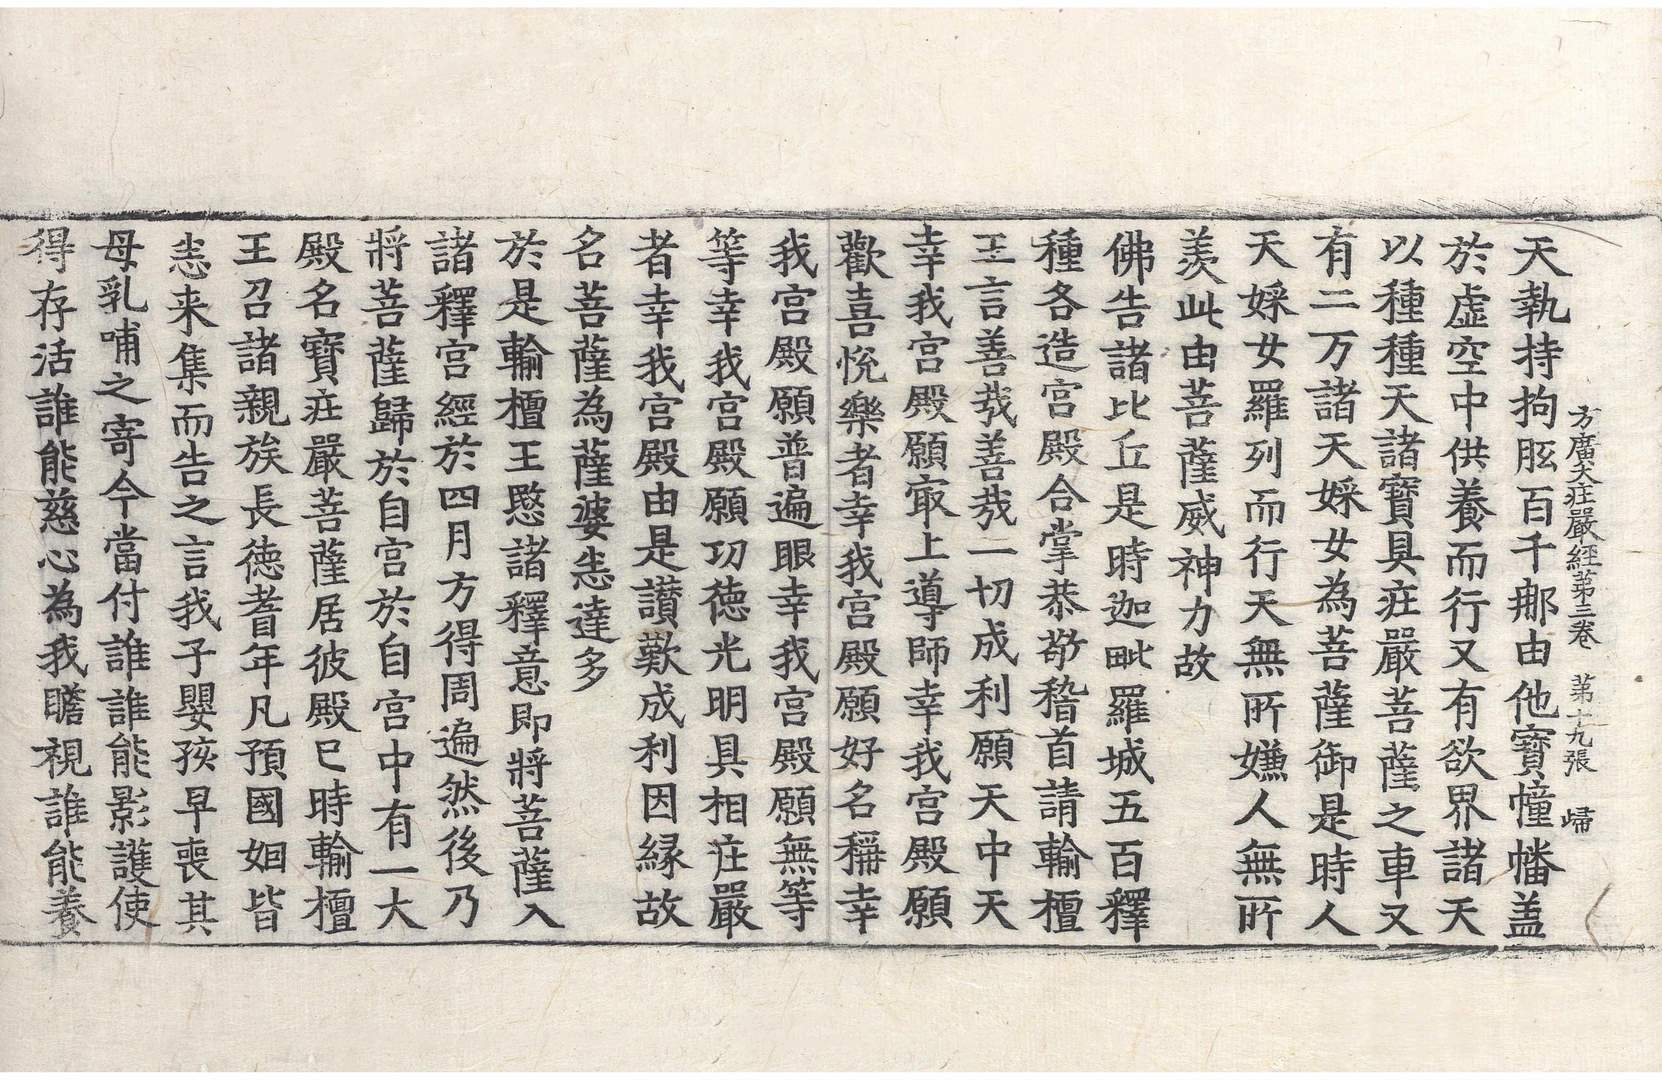 方廣大庄嚴經第三卷　第十九張　歸
天執持拘胝百千那由他寶幢幡盖
於虛空中供養而行又有欲界諸天
以種種天諸寶具庄嚴菩薩之車又
有二万諸天婇女為菩薩御是時人
天婇女羅列而行天無所嫌人無所
羨此由菩薩威神力故
佛告諸比丘是時迦毗羅城五百釋
種各造宮殿合掌恭敬稽首請輸檀
王言善㦲善㦲一切成利願天中天
幸我宮殿願㝡上導師幸我宮殿願
歡喜悅樂者幸我宮殿願好名稱幸
我宮殿願普遍眼幸我宮殿願無等
等幸我宮殿願功德光明具相庄嚴
者幸我宮殿由是讃歎成利因縁故
名菩薩為薩婆悉達多
於是輸檀王愍諸釋意即將菩薩入
諸釋宮經於四月方得周遍然後乃
將菩薩歸於自宮於自宮中有一大
殿名寶庄嚴菩薩居彼殿已時輸檀
王召諸親族長德耆年凡預國姻皆
悉来集而告之言我子嬰孩早喪其
母乳哺之寄今當付誰誰能影護使
得存活誰能慈心為我瞻視誰能養